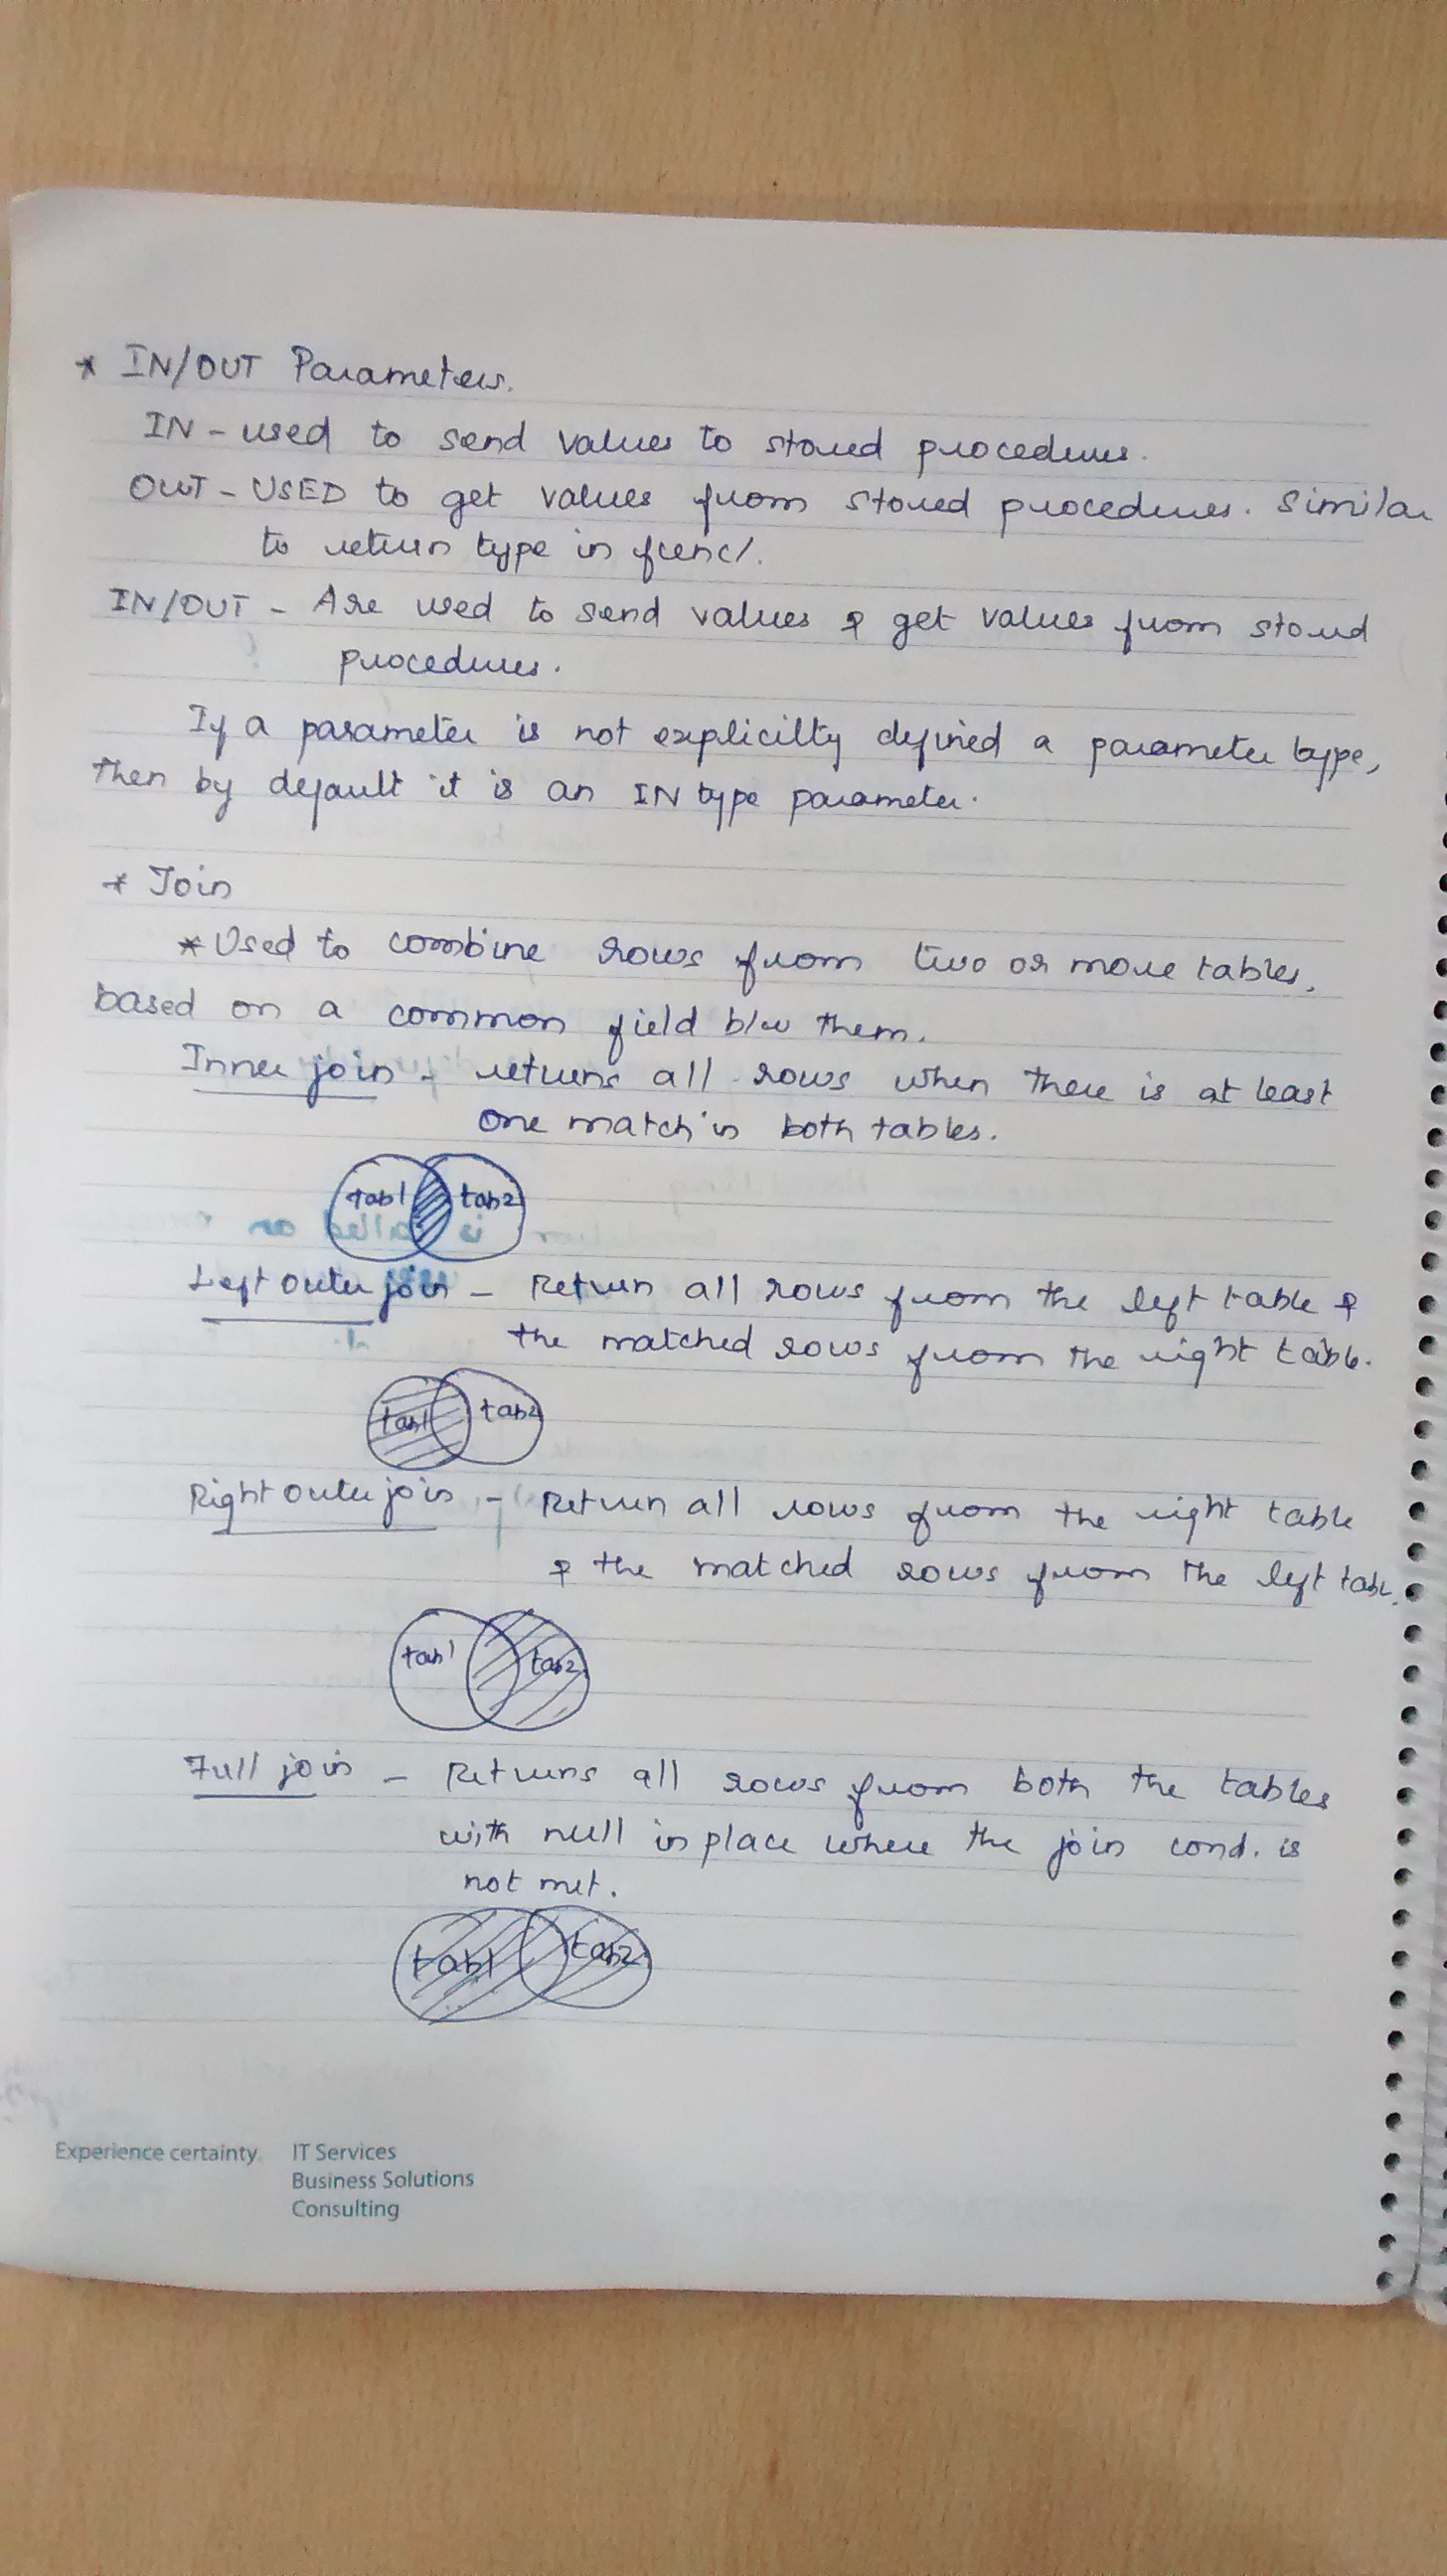 * IN/OUT Parameters.
IN - used to send values to stored procedures.
OUT - USED to get values from stored procedures. Similar
to return type in func/.
IN/OUT - Are used to send values & get values from stored
procedures.
If a parameter is not explicilty defined a parameter type,
then by default it is an IN type parameter.
* Join
* Used to combine rows from two or more tables,
based on a common field b/w them.
Inner join - returns all rows when there is at least
one match in both tables.
tab1 tab2
Left outer join - Return all rows from the left table &
the matched rows from the right table.
tab1 tab2
Right outer join - Return all rows from the right table
& the matched rows from the left table.
tab1 tab2
Full join - Returns all rows from both the tables
with null in place where the join cond. is
not met.
tab1 tab2
Experience certainty. IT Services
Business Solutions
Consulting